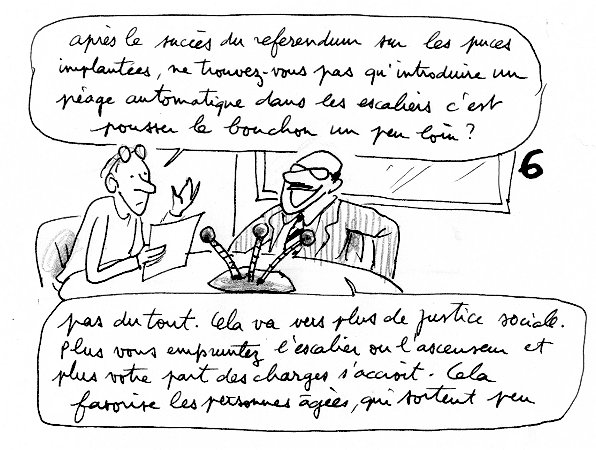 après le succès du referendum sur les puces
implantées, ne trouvez-vous pas qu'introduire un
péage automatique dans les escaliers c'est
pousser le bouchon un peu loin?
6
pas du tout. Cela va vers plus de justice sociale.
Plus vous empruntez l'escalier ou l'ascenseur et
plus votre part des charges s'accroit. Cela
favorise les personnes âgées, qui sortent peu